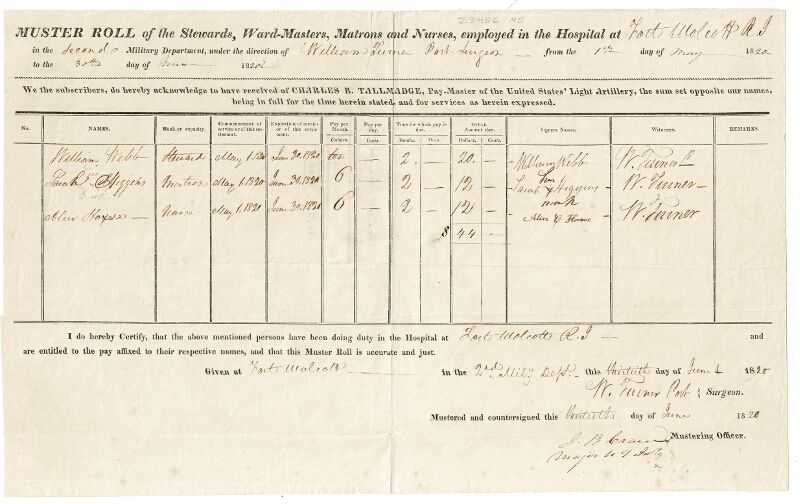 23456 MS
MUSTER ROLL of the Stewards, Ward-Masters, Matrons and Nurses, employed in the Hospital at Fort Wolcott R I
in the second Military Department, under the direction of William Turner Post Surgeon — from the 1st day of May 1820
to the 30th day of June 1820
We the subscribers, do hereby acknowledge to have received of CHARLES B. TALLMADGE, Pay-Master of the United States' Light Artillery, the sum set opposite our names,
being in full for the time herein stated, and for services as herein expressed.
No. NAMES. Rank or capacity. Commencement of service or of this settlement. Expiration of service or of this settlement. Pay per Month. Pay per day. Time for which pay is due. TOTAL Amount due. Signers Names. Witnesses. REMARKS.
Dollars. Cents. Months. Days. Dollars. Cents.
William Webb Steward May 1, 1820 June 30, 1820 ten — 2 — 20 — William Webb W. Turner
Sarah Higgins Matron May 1, 1820 June 30, 1820 6 — 2 — 12 — Sarah Higgins W. Turner
her
mark
Nurse May 1, 1820 June 30, 1820 6 — 2 — 12 — W. Turner
$ 44 —
I do hereby Certify, that the above mentioned persons have been doing duty in the Hospital at Fort Wolcott R. I — and
are entitled to the pay affixed to their respective names, and that this Muster Roll is accurate and just.
Given at Fort Wolcott — in the 2nd Mily Dept. this thirtieth day of June 1820
W. Turner Post } Surgeon.
Mustered and countersigned this thirtieth day of June 1820
J. B. Crane Mustering Officer.
Major